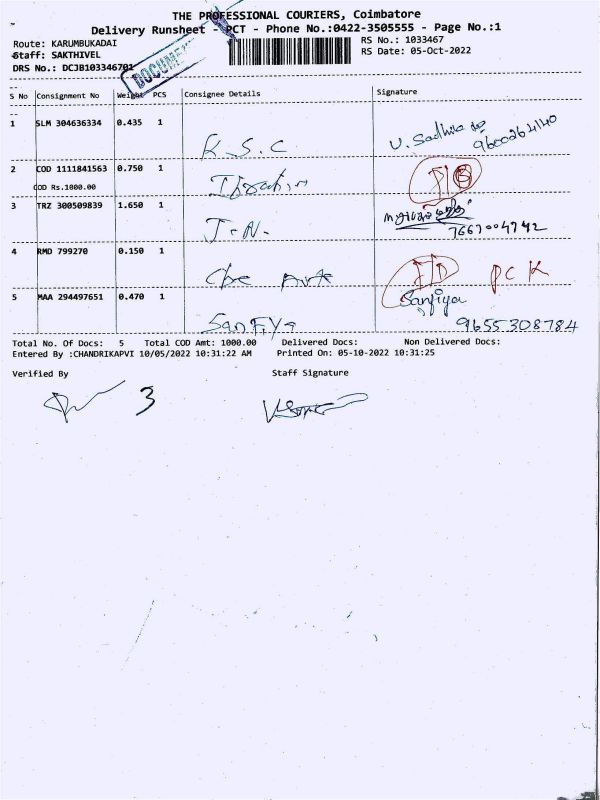 THE PROFESSIONAL COURIERS, Coimbatore
Delivery Runsheet - PCT - Phone No.:0422-3505555 - Page No.:1
Route: KARUMBUKADAI
RS No.: 1033467
Staff: SAKTHIVEL
RS Date: 05-Oct-2022
DRS No.: DCJB103346701
DOCUMENT
S No Consignment No Weight PCS Consignee Details Signature
1 SLM 304636334 0.435 1 K.S.C U. Sadhika
9600264140
2 COD 1111841563 0.750 1 Ibrahim
COD Rs.1000.00
3 TRZ 300509839 1.650 1 J.N.
7667004742
4 RMD 799270 0.150 1 Cbe Art PCK
5 MAA 294497651 0.470 1 Sanfiya Sanfiya
9655308784
Total No. Of Docs: 5 Total COD Amt: 1000.00 Delivered Docs: Non Delivered Docs:
Entered By :CHANDRIKAPVI 10/05/2022 10:31:22 AM Printed On: 05-10-2022 10:31:25
Verified By Staff Signature
3